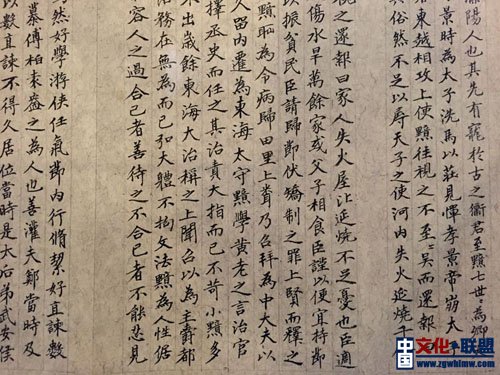 陽人也其先有寵於古之衛君至黯七世=為卿
景時為太子洗馬以莊見憚孝景帝崩太
東越相攻上使黯往視之不至=吳而還報
俗然不足以辱天子之使河內失火延燒千
視之還報曰家人失火屋比延燒不足憂也臣過
傷水旱萬餘家或父子相食臣謹以便宜持節
以振貧民臣請歸節伏矯制之罪上賢而釋之
黯恥為令病歸田里上聞乃召拜為中大夫以
久留內遷為東海太守黯學黃老之言治官
擇丞史而任之其治責大指而已不苛小黯多
出歲餘東海大治稱之上聞召以為主爵都
治務在無為而已弘大體不拘文法黯為人性倨
容人之過合己者善待之不合己者不能忍見
然好學游俠任氣節內行脩絜好直諫數
慕傅柏袁盎之為人也善灌夫鄭當時及
以數直諫不得久居位當時是太后弟武安侯
中国文化联盟
www.zgwhlm.com